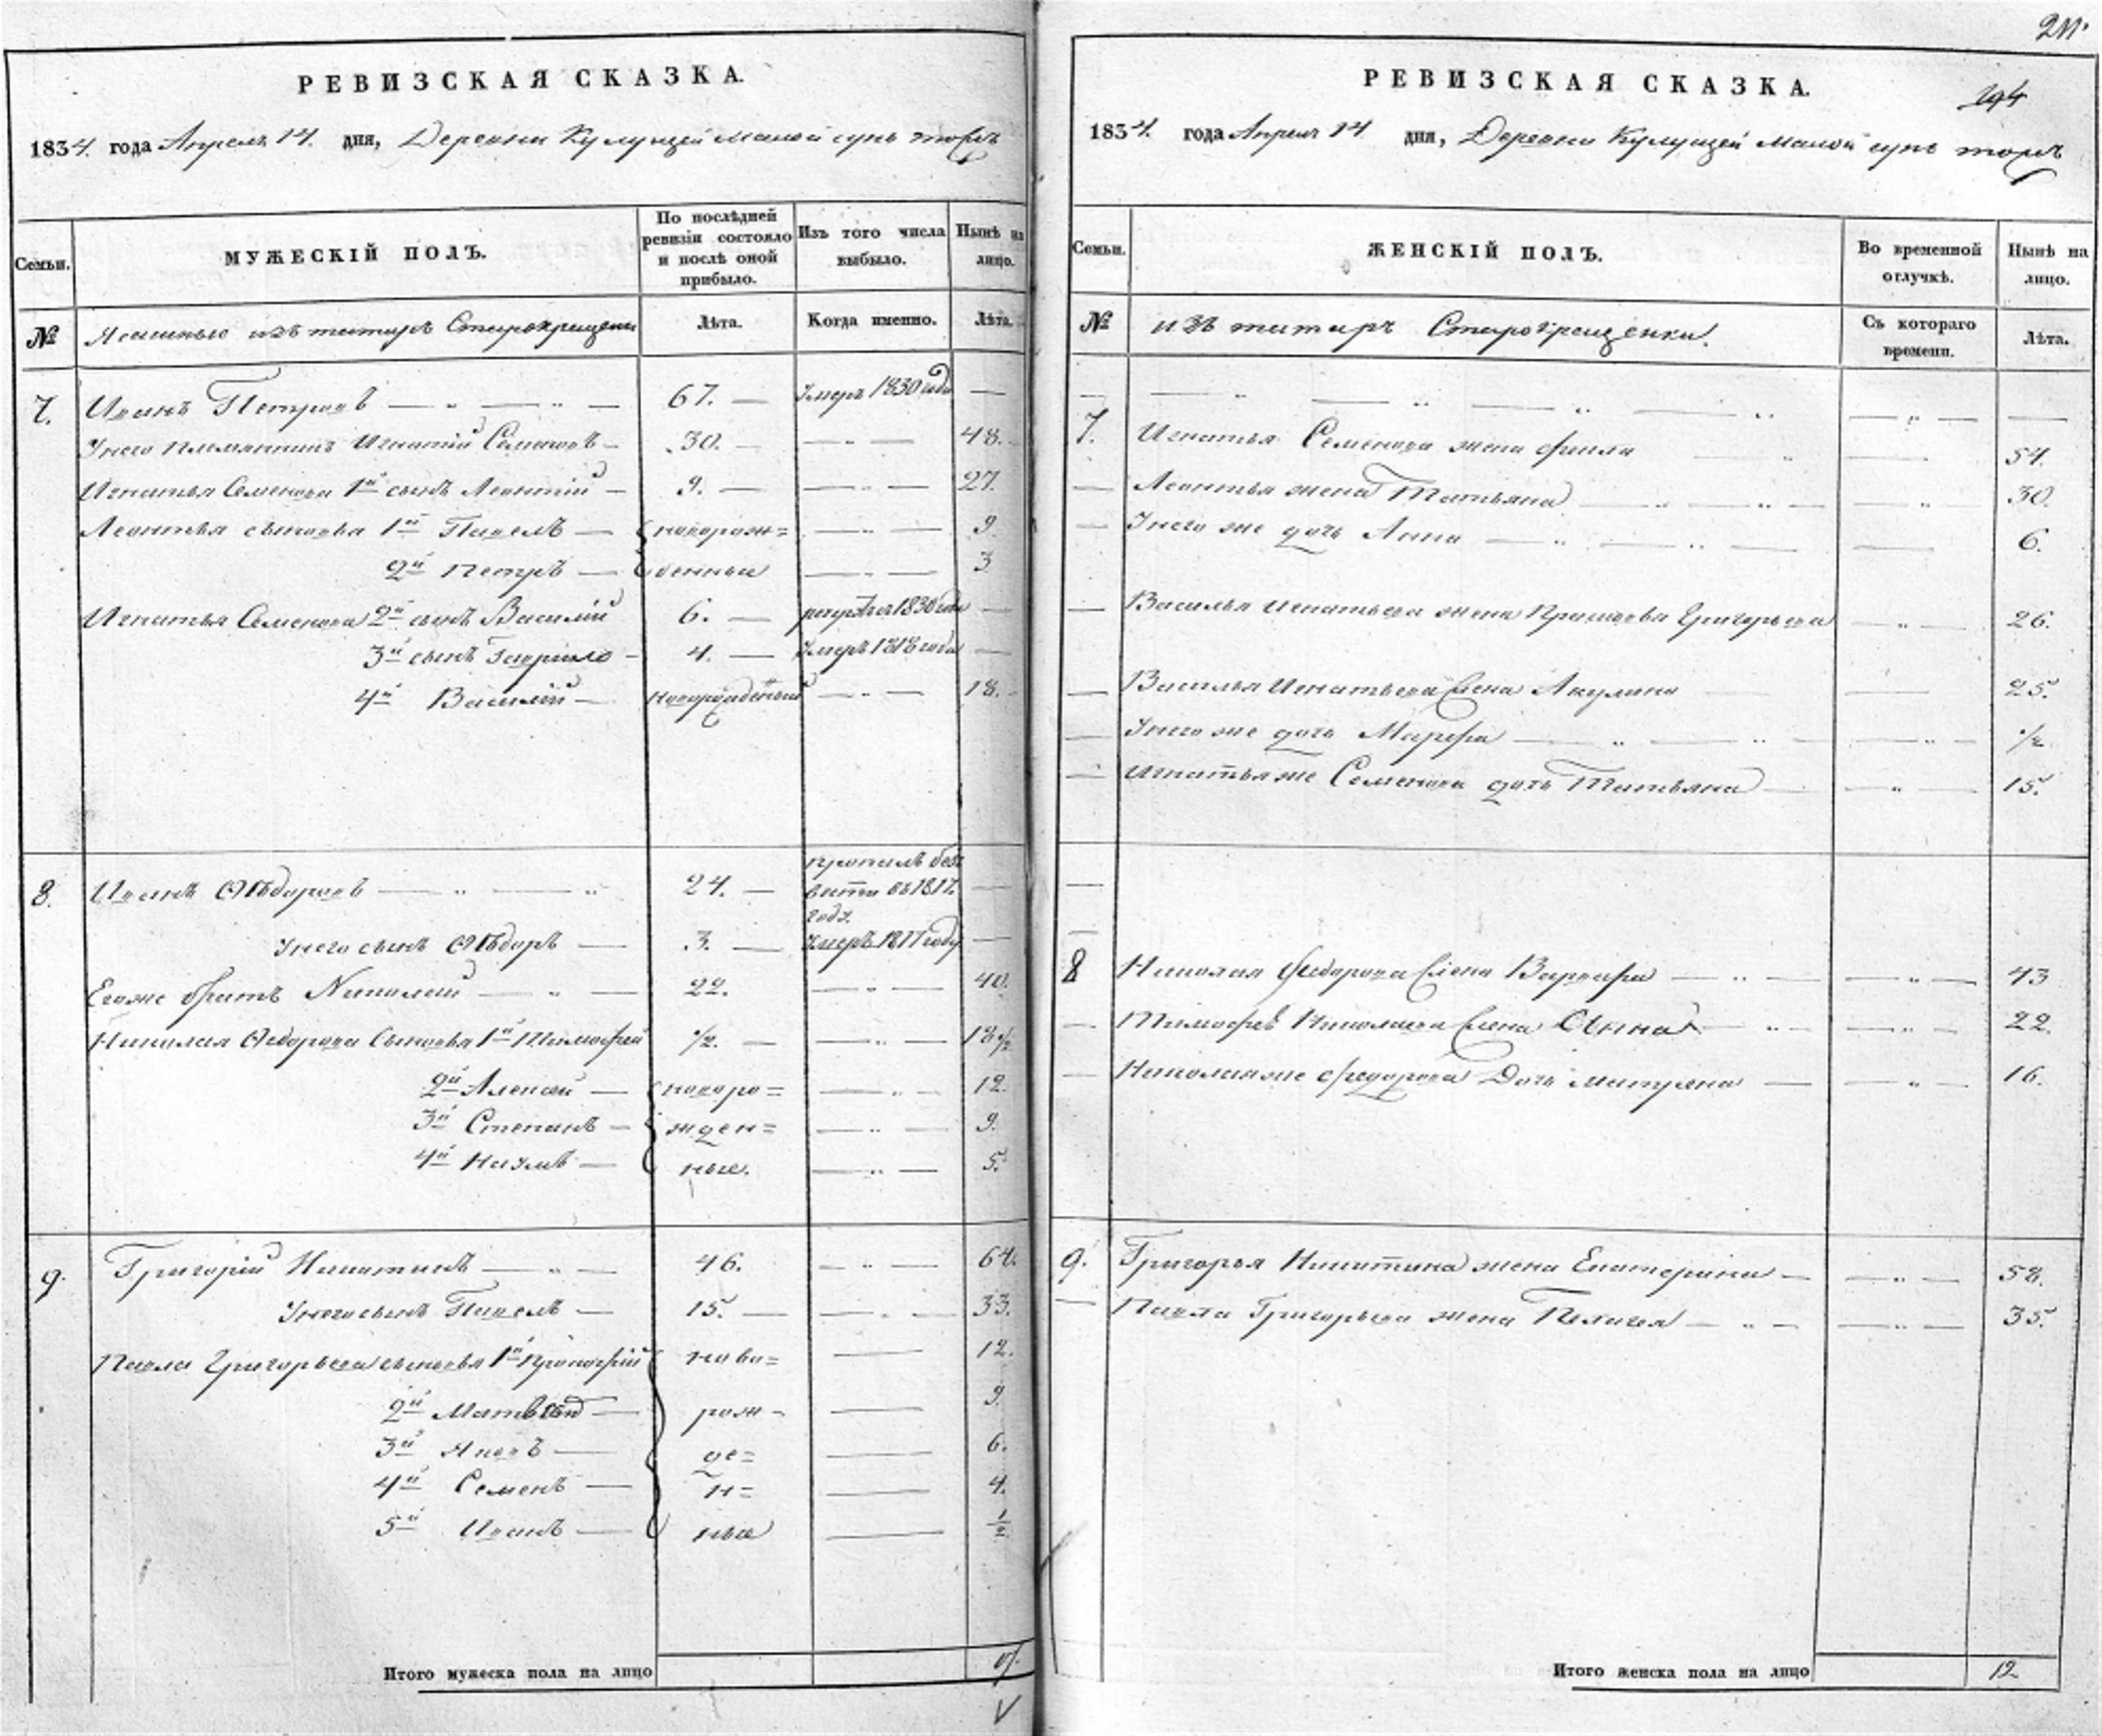 РЕВИЗСКАЯ СКАЗКА.
1834. года Апреля 14. дня, Деревни Кулущей малой сунь тожъ
Семьи.
МУЖЕСКІЙ ПОЛЪ.
По послѣдней ревизіи состояло и послѣ оной прибыло.
Изъ того числа выбыло.
Нынѣ на лицо.
№
Ясашные изъ татаръ Старокрещены
Лѣта.
Когда именно.
Лѣта.
7. Иванъ Петровъ 67. Умеръ 1830 года
Унего племянникъ Игнатій Семеновъ 30. 48.
Игнатья Семенова 1й сынъ Леонтій 9. 27.
Леонтья сыновья 1й Павелъ новорож= 9.
2й Петръ денныи 3
Игнатья Семенова 2й сынъ Василій 6. 1830 года
3й сынъ Гаврило 4. Умеръ 1818 года
4й Василій новорожденный 18.
8. Иванъ Ѳѣдоровъ 24. пропалъ безъ вѣсти въ 1817. году.
Унего сынъ Ѳѣдоръ 3. Умеръ 1817 году
Егоже братъ Николай 22. 40.
Николая Ѳедорова Сыновья 1й Тимофей 1/2. 18 1/2
2й Алексей новоро= 12.
3й Степанъ жден= 9.
4й Наумъ ные. 5.
9. Григорій Никитинъ 46. 64.
Унего сынъ Павелъ 15. 33.
Павла Григорьева сыновья 1й Прокофій ново= 12.
2й Матвѣй рож- 9.
3й Яковъ де= 6.
4й Семенъ н= 4.
5й Иванъ ные 1/2
Итого мужеска пола на лицо
211.
194
РЕВИЗСКАЯ СКАЗКА.
1834. года Апреля 14 дня, Деревни Кулущей малой сунь тожъ
Семьи.
ЖЕНСКІЙ ПОЛЪ.
Во временной отлучкѣ.
Нынѣ на лицо.
№
изъ татаръ Старокрещенки.
Съ котораго времени.
Лѣта.
7. Игнатья Семенова жена 54.
Леонтья жена Татьяна 30.
Унего же дочь Анна 6.
Василья Игнатьева жена Прасковья Григорьева 26.
Василья Игнатьева Жена Акулина 25.
Унего же дочь Марфа 1/2
Игнатья же Семенова дочь Татьяна 15.
8 Николая Федорова Жена Варвара 43
Тимофея Николаева Жена Анна 22.
Николая же Федорова Дочь Матрена 16.
9. Григорья Никитина жена Екатерина 58.
Павла Григорьева жена Пелагея 35.
Итого женска пола на лицо 12.